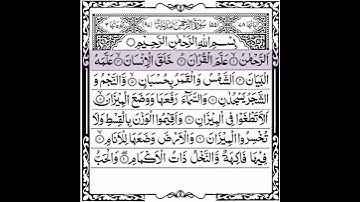 (٥٥) سُوْرَةُ الرَّحْمٰنِ
بِسْمِ اللهِ الرَّحْمٰنِ الرَّحِيْمِ
اَلرَّحْمٰنُ ۙ﴿۱﴾ عَلَّمَ الْقُرْاٰنَ ؕ﴿۲﴾ خَلَقَ الْاِنْسَانَ ۙ﴿۳﴾ عَلَّمَهُ
الْبَيَانَ ﴿۴﴾ اَلشَّمْسُ وَالْقَمَرُ بِحُسْبَانٍ ﴿۵﴾ وَّالنَّجْمُ وَ
الشَّجَرُ يَسْجُدٰنِ ﴿۶﴾ وَالسَّمَآءَ رَفَعَهَا وَوَضَعَ الْمِيْزَانَ ۙ﴿۷﴾
اَلَّا تَطْغَوْا فِي الْمِيْزَانِ ﴿۸﴾ وَاَقِيْمُوا الْوَزْنَ بِالْقِسْطِ وَلَا
تُخْسِرُوا الْمِيْزَانَ ﴿۹﴾ وَالْاَرْضَ وَضَعَهَا لِلْاَنَامِ ۙ﴿۱۰﴾
فِيْهَا فَاكِهَةٌ ۙ وَّالنَّخْلُ ذَاتُ الْاَكْمَامِ ۖ﴿۱۱﴾ وَالْحَبُّ